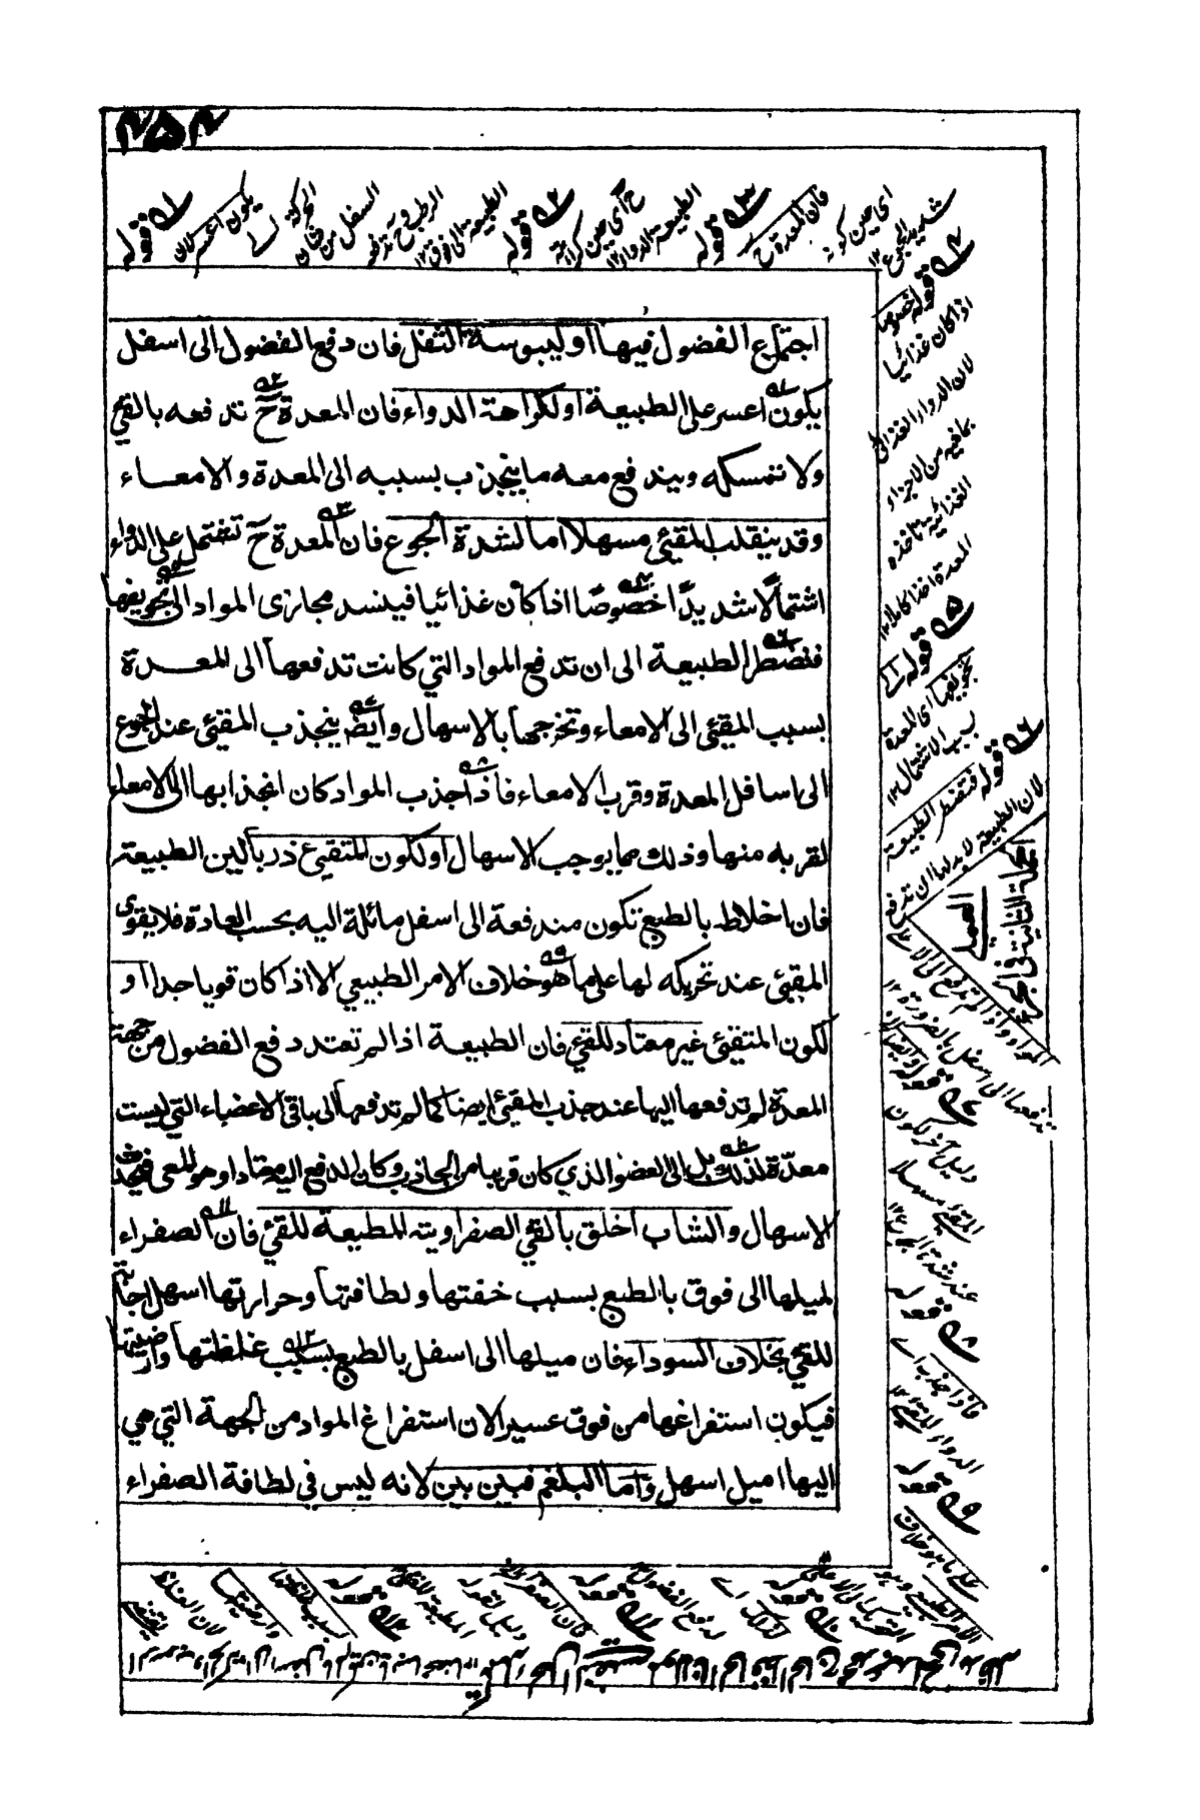 ۴۵۴
اجتماع الفضول فيها او ليبوسة الثفل فان دفع الفضول الى اسفل
يكون اعسر على الطبيعة او لكراهة الدواء فان المعدة ح تدفعه بالقئ
ولا تمسكه ويندفع معه ما ينجذب بسببه الى المعدة والامعاء
وقد ينقلب المقيئ مسهلا اما لشدة الجوع فان المعدة ح تشتمل على الدواء
اشتمالا شديدا خصوصا اذا كان غذائيا فينسد مجارى المواد الى تجويفها
فتضطر الطبيعة الى ان تدفع المواد التي كانت تدفعها الى المعدة
بسبب المقيئ الى الامعاء وتخرجها بالاسهال وايضا ينجذب المقيئ عند الجوع
الى اسافل المعدة وقرب الامعاء فاذا جذب المواد كان انجذابها الى الامعاء
لقربه منها وذلك مما يوجب الاسهال او لكون المتقيئ ذربا لين الطبيعة
فان اخلاط بالطبع تكون مندفعة الى اسفل مائلة اليه بحسب العادة فلا يقوى
المقيئ عند تحريكه لها على ما هو خلاف الامر الطبيعي الا اذا كان قويا جدا او
لكون المتقيئ غير معتاد للقئ فان الطبيعة اذا لم تعتد دفع الفضول من جهة
المعدة لم تدفعها اليها عند جذب المقيئ ايضا كما لم تدفعها الى باقى الاعضاء التي ليست
معدّة لذلك بل الى العضو الذي كان قريبا من الجاذب وكان الدفع اليه معتادا وهو المعى فيحدث
الاسهال والشاب اخلق بالقئ الصفراويته المطيعة للقئ فان الصفراء
لميلها الى فوق بالطبع بسبب خفتها ولطافتها وحرارتها اسهل اجابة
للقئ بخلاف السوداء فان ميلها الى اسفل بالطبع بسبب غلظتها وارضيتها
فيكون استفراغها من فوق عسيرا لان استفراغ المواد من الجهة التي هي
اليها اميل اسهل واما البلغم فبين بين لانه ليس في لطافة الصفراء
قوله
يكون اعسر لان
الحركة الى
السفل من شان
الطبيعة الى فوق ١٢
قوله
ح اى حين
الطبيعة الدواء ١٢
قوله
فان المعدة ح
اى حين كونه
شديد الجوع ١٢
قوله خصوصا
اذا كان غذائيا
لان الدواء الغذائى
بما فيه من الاجزاء
الغذائية تاخذه
المعدة اخذا كاملا ١٢
قوله الى
تجويفها اى المعدة
بسبب الاشتمال ١٢
قوله فتضطر الطبيعة
لان الطبيعة لا بد لها ان تدفع
المواد واذا لم تدفع الى الاعلى
تدفعها الى اسفل بالضرورة ١٢
الجملة الثانية فى اجزاء
العمل
قوله وايضا
دليل آخر لكون
المقيئ مسهلا
عند شدة الجوع ١٢
قوله
فاذا جذب اى
الدواء المقيئ ١٢
قوله
على ما هو خلاف
الامر الطبيعى وهو
التحريك الى الاعلى
قوله
لذلك اى
لدفع الفضول
قوله
فان الصفراء
دليل لقوله
المطيعة للقئ
قوله
بسبب غلظتها
وارضيتها
لان الغلظة